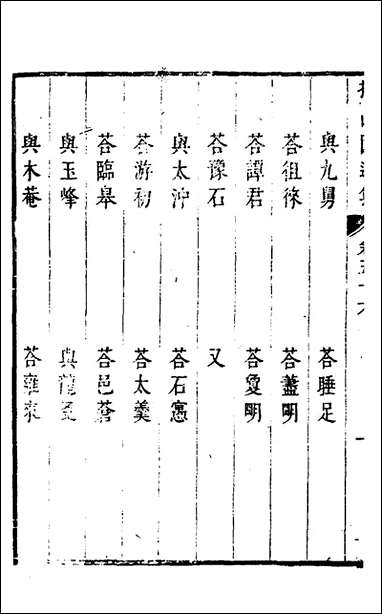 與九舅　荅睡足
荅徂徠　荅蓋明
荅譚君　荅敻明
荅豫石　又
與太沖　荅石窻
荅游初　荅太羹
荅臨皋　荅邑蒼
與玉峰
與木菴　荅雍來